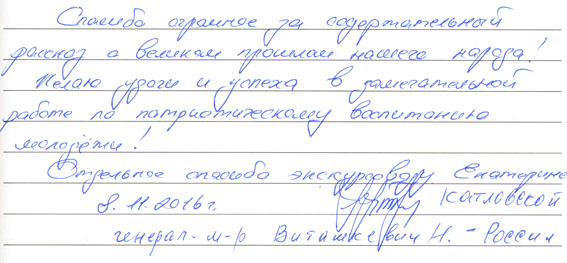 Спасибо огромное за содержательный
рассказ о великом прошлом нашего народа!
Желаю удачи и успеха в замечательной
работе по патриотическому воспитанию
молодёжи!
Отдельное спасибо экскурсоводу Екатерине
8.11.2016г. Катловской
генерал-м-р Виташкевич Н. - Россия